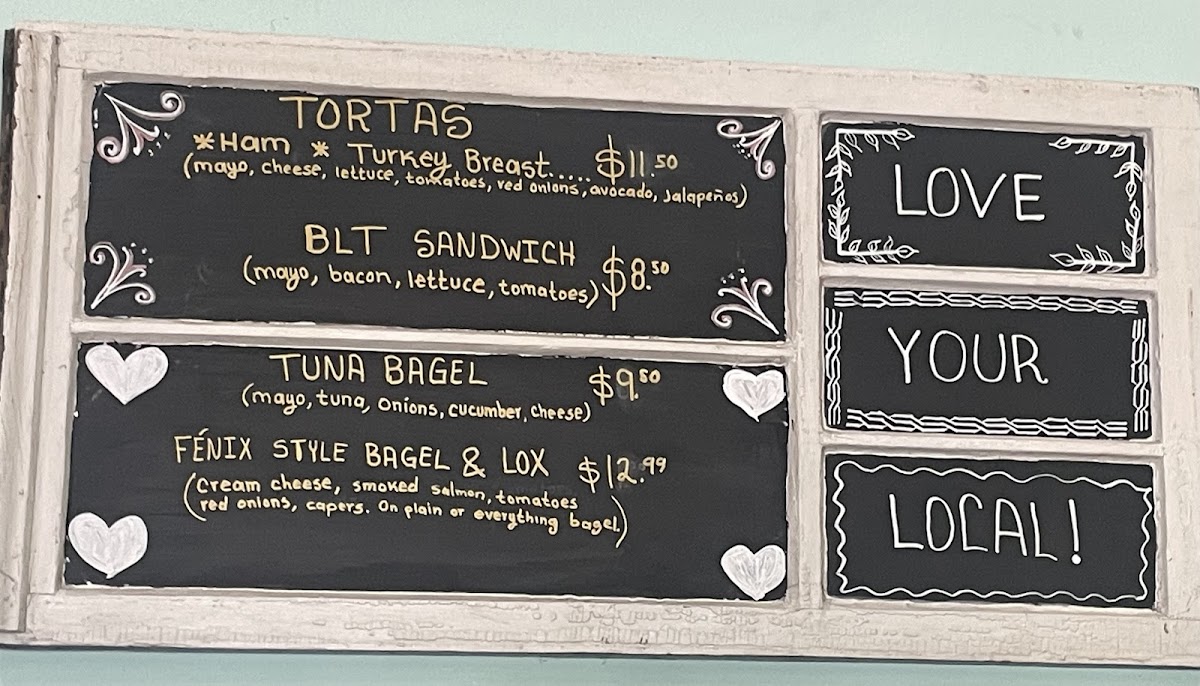 TORTAS
*Ham * Turkey Breast..... $11.50
(mayo, cheese, lettuce, tomatoes, red onions, avocado, jalapeños)
BLT SANDWICH
(mayo, bacon, lettuce, tomatoes) $8.50
TUNA BAGEL $9.50
(mayo, tuna, onions, cucumber, cheese)
FÉNIX STYLE BAGEL & LOX $12.99
(Cream cheese, smoked salmon, tomatoes
red onions, capers. On plain or everything bagel.)
LOVE
YOUR
LOCAL!